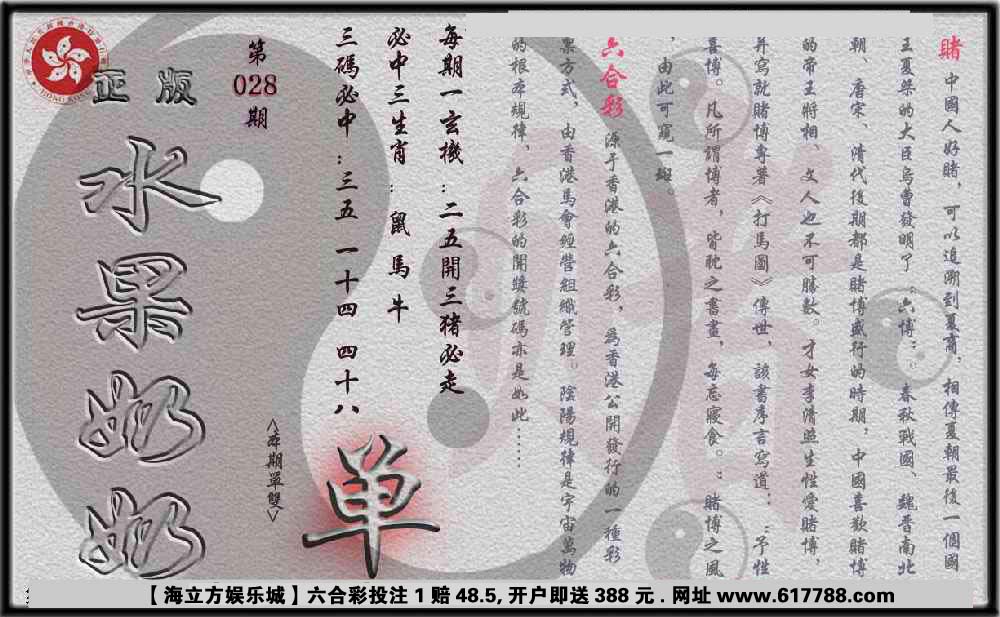 賭 中國人好賭，可以追溯到夏商，相傳夏朝最後一個國
王夏桀的大臣烏曹發明了“六博”，春秋戰國、魏晋南北
朝、唐宋、清代後期都是賭博盛行的時期，中國喜歡賭博
的帝王將相、文人也不可勝數。才女李清照生性愛賭博，
并寫就賭博專著《打馬圖》傳世，該書序言寫道：“予性
喜博。凡所謂博者，皆耽之晝夜，每忘寢食。”賭博之風
，由此可窺一斑。
六合彩 源于香港的六合彩，為香港公開發行的一種彩
票方式，由香港馬會經營組織管理。陰陽規律是宇宙萬物
的根本規律，六合彩的開獎號碼亦是如此……
每期一玄機：二五開三猪必走
必中三生肖：鼠 馬 牛
三碼必中：三五 一十四 四十八
第
028
期
<本期單雙>
单
正版
水果奶奶
【海立方娱乐城】六合彩投注1赔48.5,开户即送388元.网址www.617788.com